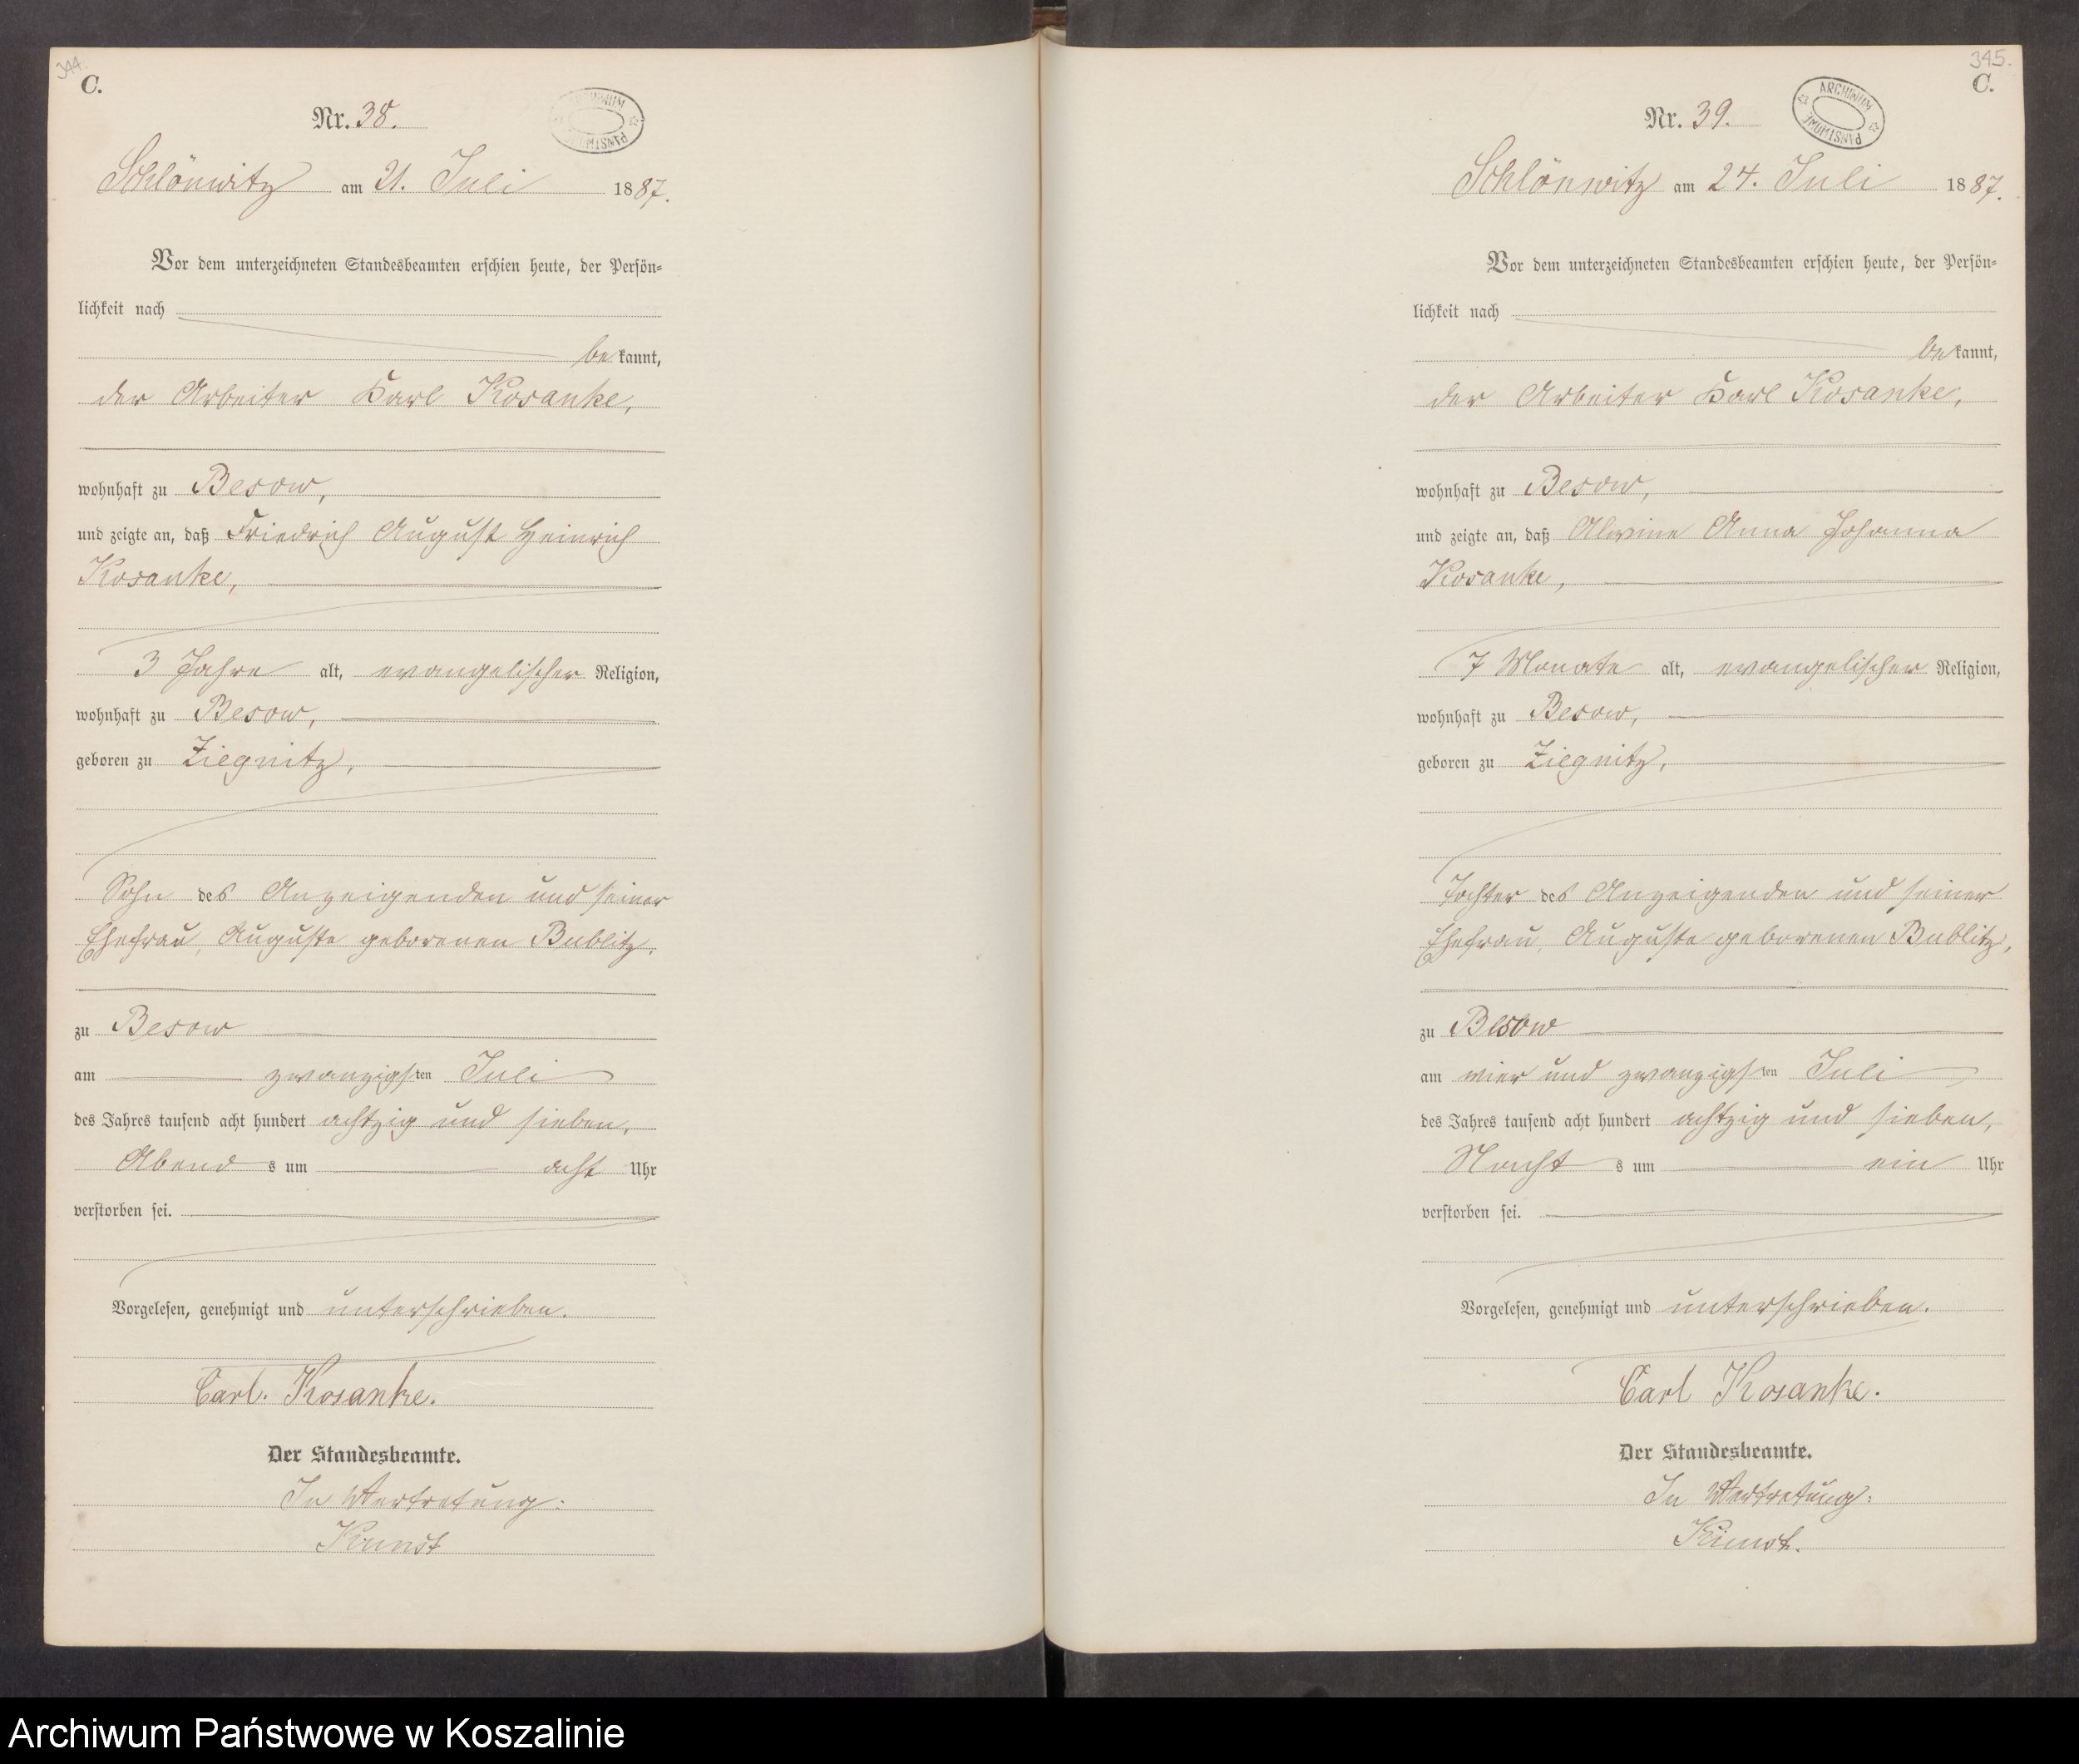 344.
C.
Nr. 38.
ARCHIWUM PAŃSTWOWE
Schlönwitz am 21. Juli 1887.
Vor dem unterzeichneten Standesbeamten erschien heute, der Persön=
lichkeit nach
be kannt,
der Arbeiter Karl Kosanke,
wohnhaft zu Besow,
und zeigte an, daß Friedrich August Heinrich
Kosanke,
3 Jahre alt, evangelischer Religion,
wohnhaft zu Besow,
geboren zu Ziegnitz,
Sohn des Anzeigenden und seiner
Ehefrau, Auguste geborenen Bublitz,
zu Besow
am zwanzigsten Juli
des Jahres tausend acht hundert achtzig und sieben,
Abend s um acht Uhr
verstorben sei.
Vorgelesen, genehmigt und unterschrieben.
Carl. Kosanke.
Der Standesbeamte.
In Vertretung:
Kunst
345.
C.
Nr. 39.
ARCHIWUM PAŃSTWOWE
Schlönwitz am 24. Juli 1887.
Vor dem unterzeichneten Standesbeamten erschien heute, der Persön=
lichkeit nach
be kannt,
der Arbeiter Karl Kosanke,
wohnhaft zu Besow,
und zeigte an, daß Alwine Anna Johanna
Kosanke,
7 Monate alt, evangelischer Religion,
wohnhaft zu Besow,
geboren zu Ziegnitz,
Tochter des Anzeigenden und seiner
Ehefrau, Auguste geborenen Bublitz,
zu Besow
am vier und zwanzigsten Juli
des Jahres tausend acht hundert achtzig und sieben,
Nacht s um ein Uhr
verstorben sei.
Vorgelesen, genehmigt und unterschrieben.
Carl Kosanke.
Der Standesbeamte.
In Vertretung:
Kunst.
Archiwum Państwowe w Koszalinie